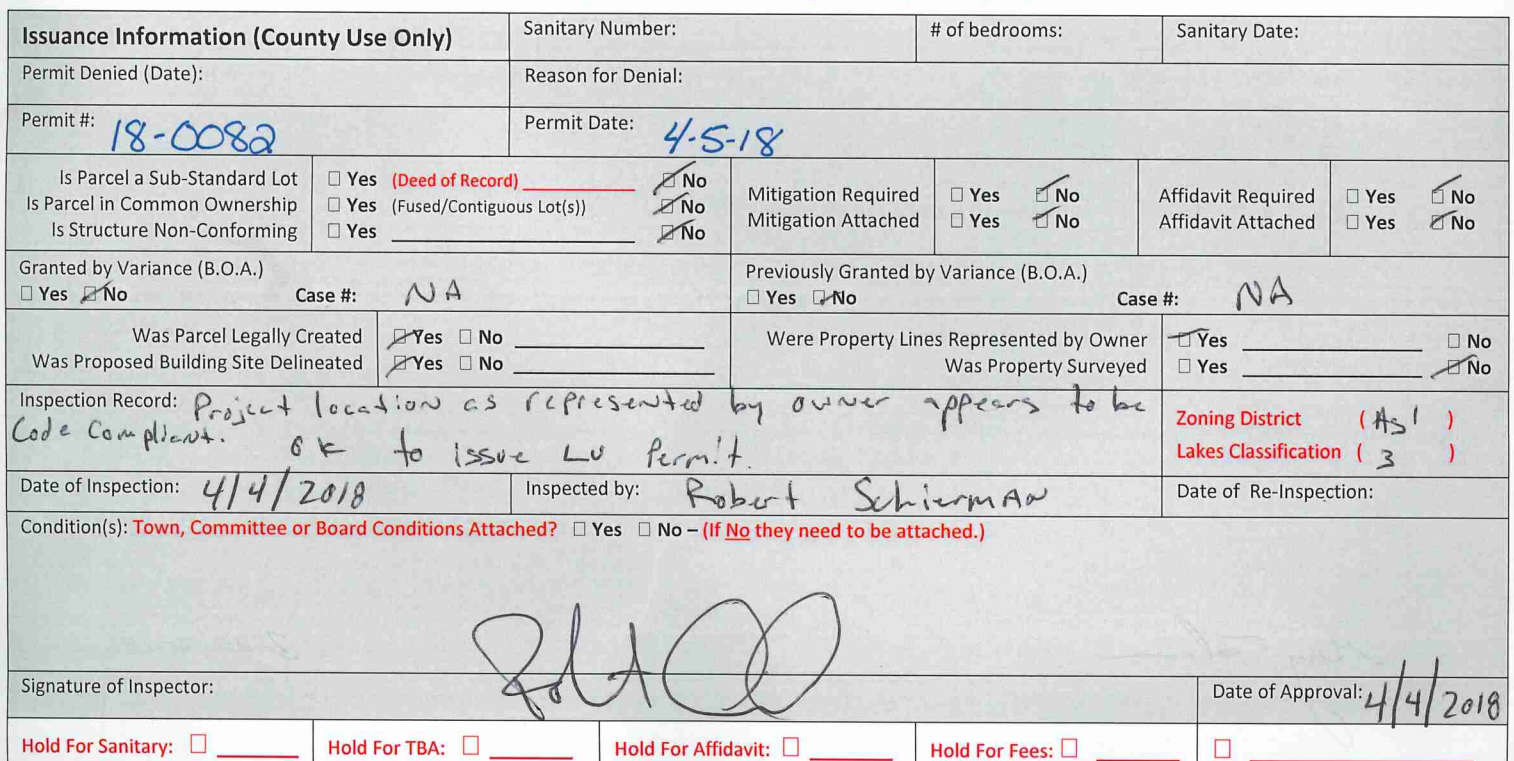 Issuance Information (County Use Only) Sanitary Number: # of bedrooms: Sanitary Date:
Permit Denied (Date): Reason for Denial:
Permit #: 18-0082 Permit Date: 4-5-18
Is Parcel a Sub-Standard Lot □ Yes (Deed of Record) ☑ No
Is Parcel in Common Ownership □ Yes (Fused/Contiguous Lot(s)) ☑ No
Is Structure Non-Conforming □ Yes ☑ No
Mitigation Required □ Yes ☑ No
Mitigation Attached □ Yes ☑ No
Affidavit Required □ Yes ☑ No
Affidavit Attached □ Yes ☑ No
Granted by Variance (B.O.A.)
□ Yes ☑ No Case #: NA
Previously Granted by Variance (B.O.A.)
□ Yes ☑ No Case #: NA
Was Parcel Legally Created ☑ Yes □ No
Was Proposed Building Site Delineated ☑ Yes □ No
Were Property Lines Represented by Owner ☑ Yes □ No
Was Property Surveyed □ Yes ☑ No
Inspection Record: Project location as represented by owner appears to be
Code Compliant. ok to issue LU Permit.
Zoning District ( Ag1 )
Lakes Classification ( 3 )
Date of Inspection: 4/4/2018 Inspected by: Robert Schierman Date of Re-Inspection:
Condition(s): Town, Committee or Board Conditions Attached? □ Yes □ No – (If No they need to be attached.)
Signature of Inspector: Date of Approval: 4/4/2018
Hold For Sanitary: □ Hold For TBA: □ Hold For Affidavit: □ Hold For Fees: □ □